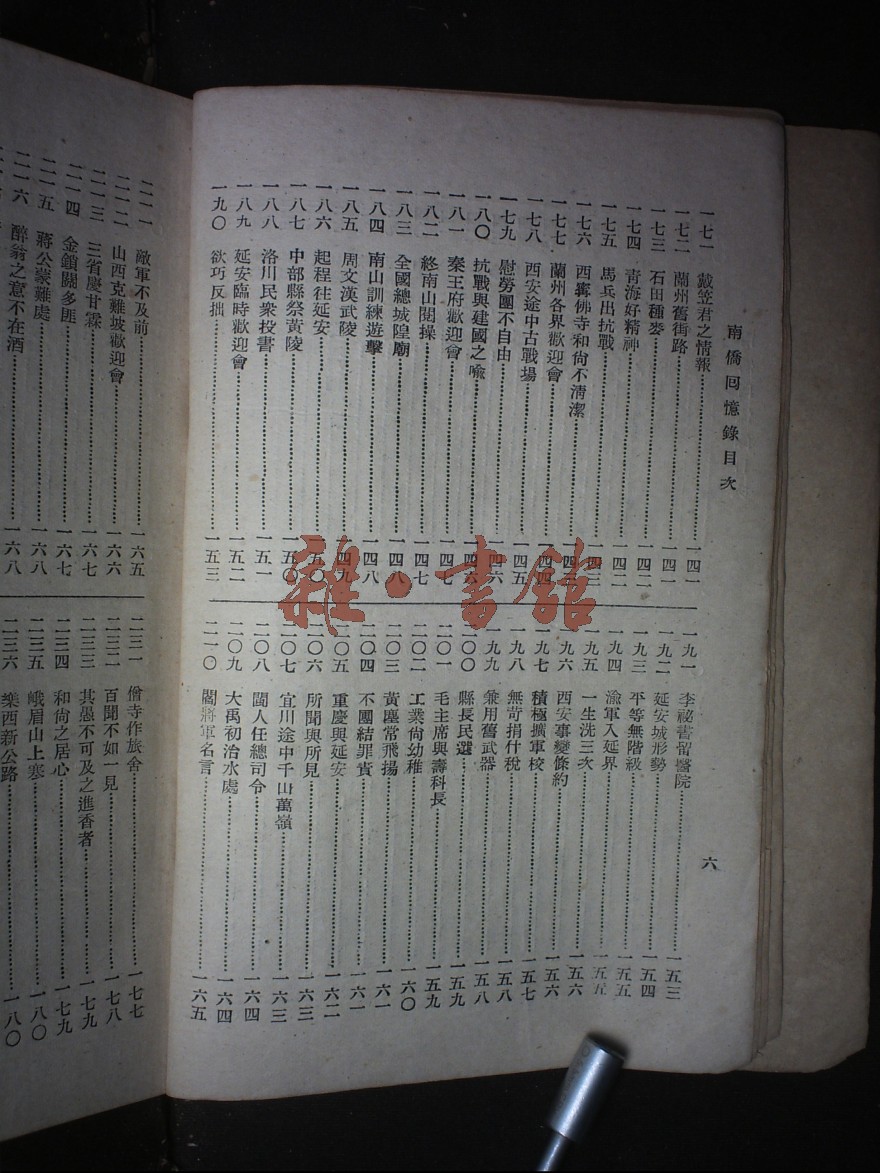 南僑回憶錄目次
六
一七一 戴笠君之情報……一四一
一七二 蘭州舊街路……一四一
一七三 石田種麥……一四二
一七四 靑海好精神……一四二
一七五 馬兵出抗戰……一四三
一七六 西寧佛寺和尙不淸潔……一四三
一七七 蘭州各界歡迎會……一四四
一七八 西安途中古戰場……一四五
一七九 慰勞團不自由……一四六
一八〇 抗戰與建國之喩……一四六
一八一 秦王府歡迎會……一四七
一八二 終南山閱操……一四七
一八三 全國總城隍廟……一四八
一八四 南山訓練遊擊……一四八
一八五 周文漢武陵……一四九
一八六 起程往延安……一五〇
一八七 中部縣祭黃陵……一五〇
一八八 洛川民衆投書……一五一
一八九 延安臨時歡迎會……一五二
一九〇 欲巧反拙……一五三
一九一 李祕書留醫院……一五三
一九二 延安城形勢……一五四
一九三 平等無階級……一五五
一九四 渝軍入延界……一五五
一九五 一生洗三次……一五六
一九六 西安事變條約……一五六
一九七 積極擴軍校……一五七
一九八 無苛捐什稅……一五八
一九九 兼用舊武器……一五八
二〇〇 縣長民選……一五九
二〇一 毛主席與壽科長……一五九
二〇二 工業尙幼稚……一六〇
二〇三 黃塵常飛揚……一六一
二〇四 不團結罪責……一六一
二〇五 重慶與延安……一六二
二〇六 所聞與所見……一六三
二〇七 宜川途中千山萬嶺……一六三
二〇八 閩人任總司令……一六四
二〇九 大禹初治水處……一六四
二一〇 閻將軍名言……一六五
二一一 敵軍不及前……一六五
二一二 山西克難坡歡迎會……一六六
二一三 三省慶甘霖……一六七
二一四 金鎖關多匪……一六七
二一五 蔣公蒙難處……一六八
二一六 醉翁之意不在酒……一六八
二三一 僧寺作旅舍……一七七
二三二 百聞不如一見……一七八
二三三 其愚不可及之進香者……一七九
二三四 和尙之居心……一七九
二三五 峨眉山上塞……一八〇
二三六 樂西新公路……一八〇
雜·書館